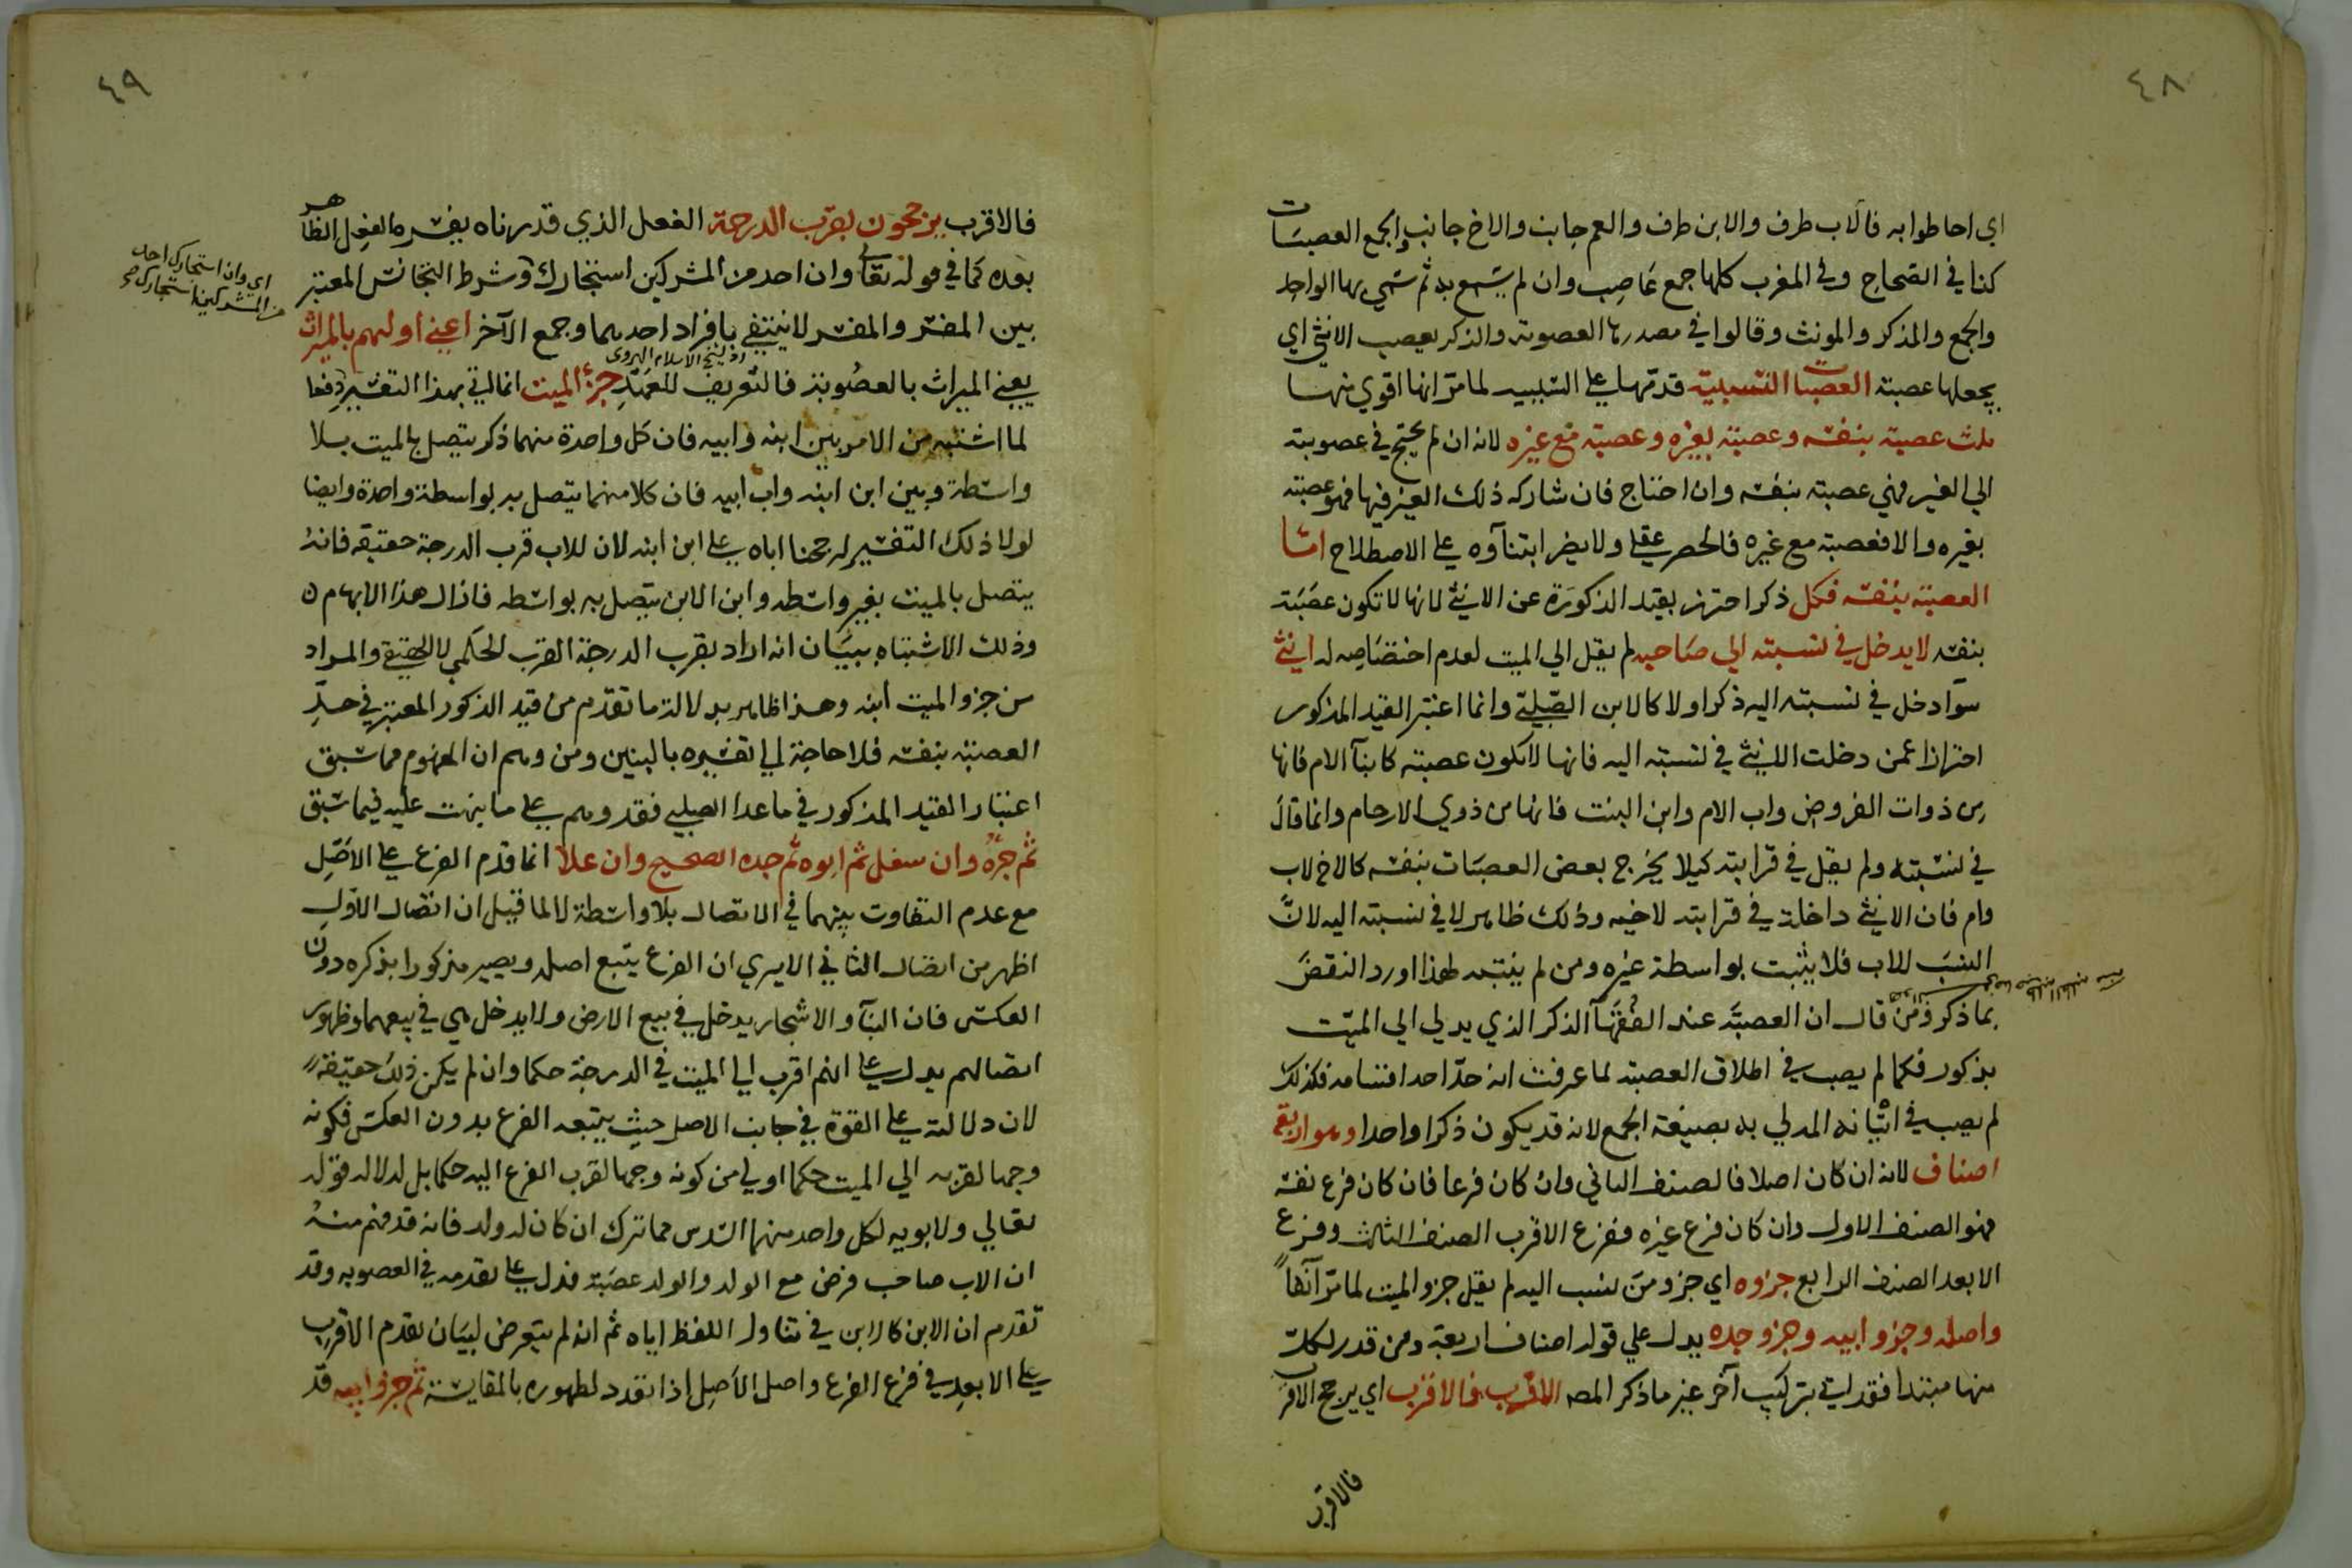 ٤٨
اي احاطوا به فالاب طرف والابن طرف والعم جانب والاخ جانب والجمع العصبات
كذا في الصحاح وفي المغرب كلها جمع عاصب وان لم يسمع به ثم سمي بها الواحد
والجمع والمذكر والمونث وقالوا في مصدرها العصوبة والذكر يعصب الانثى اي
يجعلها عصبة العصبات النسبية قدمها على السببية لما مر انها اقوي منها
ثلث عصبة بنفسه وعصبة بغيره وعصبة مع غيره لانه ان لم يحتج في عصوبته
الي الغير فهي عصبة بنفسه وان احتاج فان شاركه ذلك الغير فيها فهو عصبة
بغيره والا فعصبة مع غيره فالحصر عقلي ولا يضر ابتنآوه على الاصطلاح اما
العصبة بنفسه فكل ذكر احترز بقيد الذكورة عن الانثى لانها لا تكون عصبة
بنفسه لا يدخل في نسبته الي صاحبه لم يقل الي الميت لعدم اختصاصه له انثى
سوآ دخل في نسبته اليه ذكر اولا كالابن الصلبي وانما اعتبر القيد المذكور
احترازا عمن دخلت الانثى في نسبته اليه فانها لا تكون عصبة كابنآ الام فانها
من ذوات الفروض واب الام وابن البنت فانها من ذوي الارحام وانما قال
في نسبته ولم يقل في قرابته كيلا يخرج بعض العصبات بنفسه كالاخ لاب
وام فان الانثى داخلة في قرابته لاخيه وذلك ظاهر لا في نسبته اليه لان
النسب للاب فلا يثبت بواسطة غيره ومن لم ينتبه لهذا اورد النقض
بما ذكر ومن قال ان العصبة عند الفقهآ الذكر الذي يدلي الي الميت
بذكور فكما لم يصب في اطلاق العصبة لما عرفت انه حد احد اقسامه فكذلك
لم يصب في اتيانه المدلي به بصيغة الجمع لانه قد يكون ذكرا واحدا وهو اربعة
اصناف لانه ان كان اصلا فالصنف الثاني وان كان فرعا فان كان فرع نفسه
فهو الصنف الاول وان كان فرع غيره ففرع الاقرب الصنف الثالث وفرع
الابعد الصنف الرابع جزوه اي جزو من ينسب اليه لم يقل جزو الميت لما مر آنفا
واصله وجزو ابيه وجزو جده بدل علي قوله اصناف اربعة ومن قدر لكل
منها مبتدا فقد اتى بتركيب آخر غير ما ذكر المصه الاقرب فالاقرب اي يرجح الاقرب
فالاقرب
٤٩
فالاقرب يرجحون بقرب الدرجة الفعل الذي قدرناه يفسره الفعل الظاهر
بعده كما في قوله تعالى وان احد من المشركين استجارك وشرط التجانس المعتبر
اي وان استجارك احد
من المشركين استجارك
بين المفسَّر والمفسِّر لا ينتفي بافراد احدهما وجمع الآخر اعني اولهم بالميراث
يعني الميراث بالعصوبة فالتعريف للعهد جزء الميت انما اتى بهذا التفسير دفعا
لما اشتبه من الامر بين ابنه وابيه فان كل واحدة منهما ذكر يتصل بالميت بلا
واسطة وبين ابن ابنه واب ابيه فان كلا منهما يتصل به بواسطة واحدة وايضا
لولا ذلك التفسير لرجحنا اباه على ابن ابنه لان للاب قرب الدرجة حقيقة فانه
يتصل بالميت بغير واسطه وابن الابن يتصل به بواسطه فازال هذا الابهام
وذلك الاشتباه ببيان انه اراد بقرب الدرجة القرب الحكمي لا الحقيقي والمراد
من جزو الميت ابنه وهذا ظاهر بدلالة ما تقدم من قيد الذكور المعتبر في حد
العصبة بنفسه فلا حاجة الي تفسيره بالبنين ومن وهم ان المفهوم مما سبق
اعتبار القيد المذكور في ماعدا الصلبي فقد وهم على ما نبهت عليه فيما سبق
ثم جزؤه وان سفل ثم ابوه ثم جده الصحيح وان علا انما قدم الفرع على الاصل
مع عدم التفاوت بينهما في الاتصال بلا واسطة لا لما قيل ان اتصال الاول
اظهر من اتصال الثاني الا يري ان الفرع يتبع اصله ويصير مذكورا بذكره دون
العكس فان البنآ والاشجار يدخل في بيع الارض ولا يدخل هي في بيعهما وظهور
اتصالهم يدل على انهم اقرب الي الميت في الدرجة حكما وان لم يكن ذلك حقيقة
لان دلالته على القوة في جانب الاصل حيث يتبعه الفرع بدون العكس فكونه
وجها لقربه الي الميت حكما اولي من كونه وجها لقرب الفرع اليه حكما بل لدلالة قوله
تعالي ولابويه لكل واحد منهما السدس مما ترك ان كان له ولد فانه قد فهم منه
ان الاب صاحب فرض مع الولد والولد عصبة فدل على تقدمه في العصوبه وقد
تقدم ان الابن كالابن في تناول اللفظ اياه ثم انه لم يتعرض لبيان تقدم الاقرب
على الابعد في فرع الفرع واصل الاصل اذا تعدد لظهوره بالمقايسة ثم جزو ابيه قد